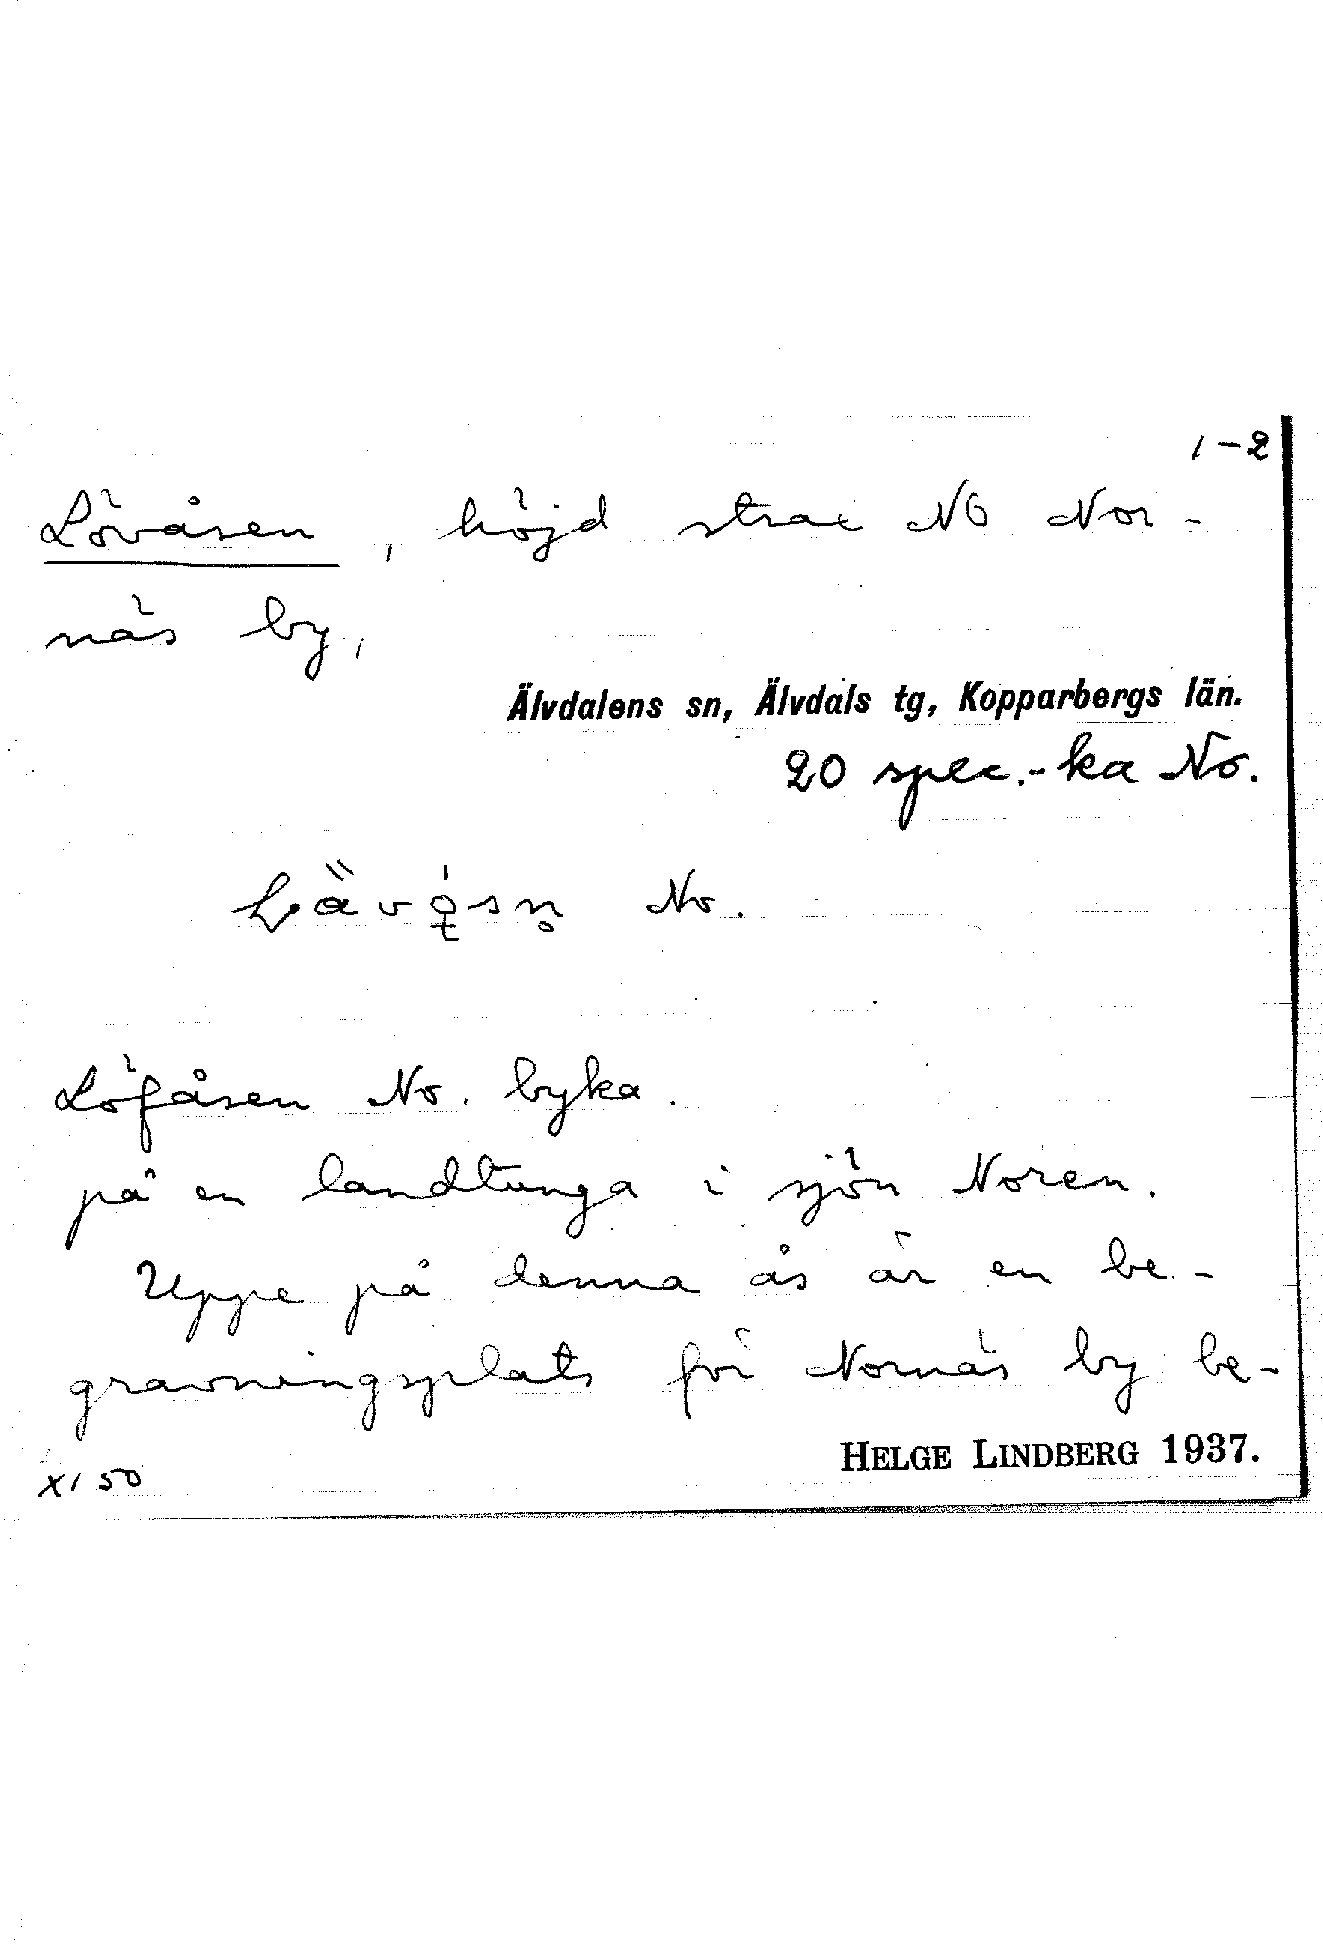 1-2
Lövåsen, höjd strax NO Nor-
näs by,
Älvdalens sn, Älvdals tg, Kopparbergs län.
20 spec.-ka No.
No.
Löfåsen No. byka.
på en landtunga i sjön Noren.
Uppe på denna ås är en be-
gravningsplats för Nornäs by be-
HELGE LINDBERG 1937.
XI 50